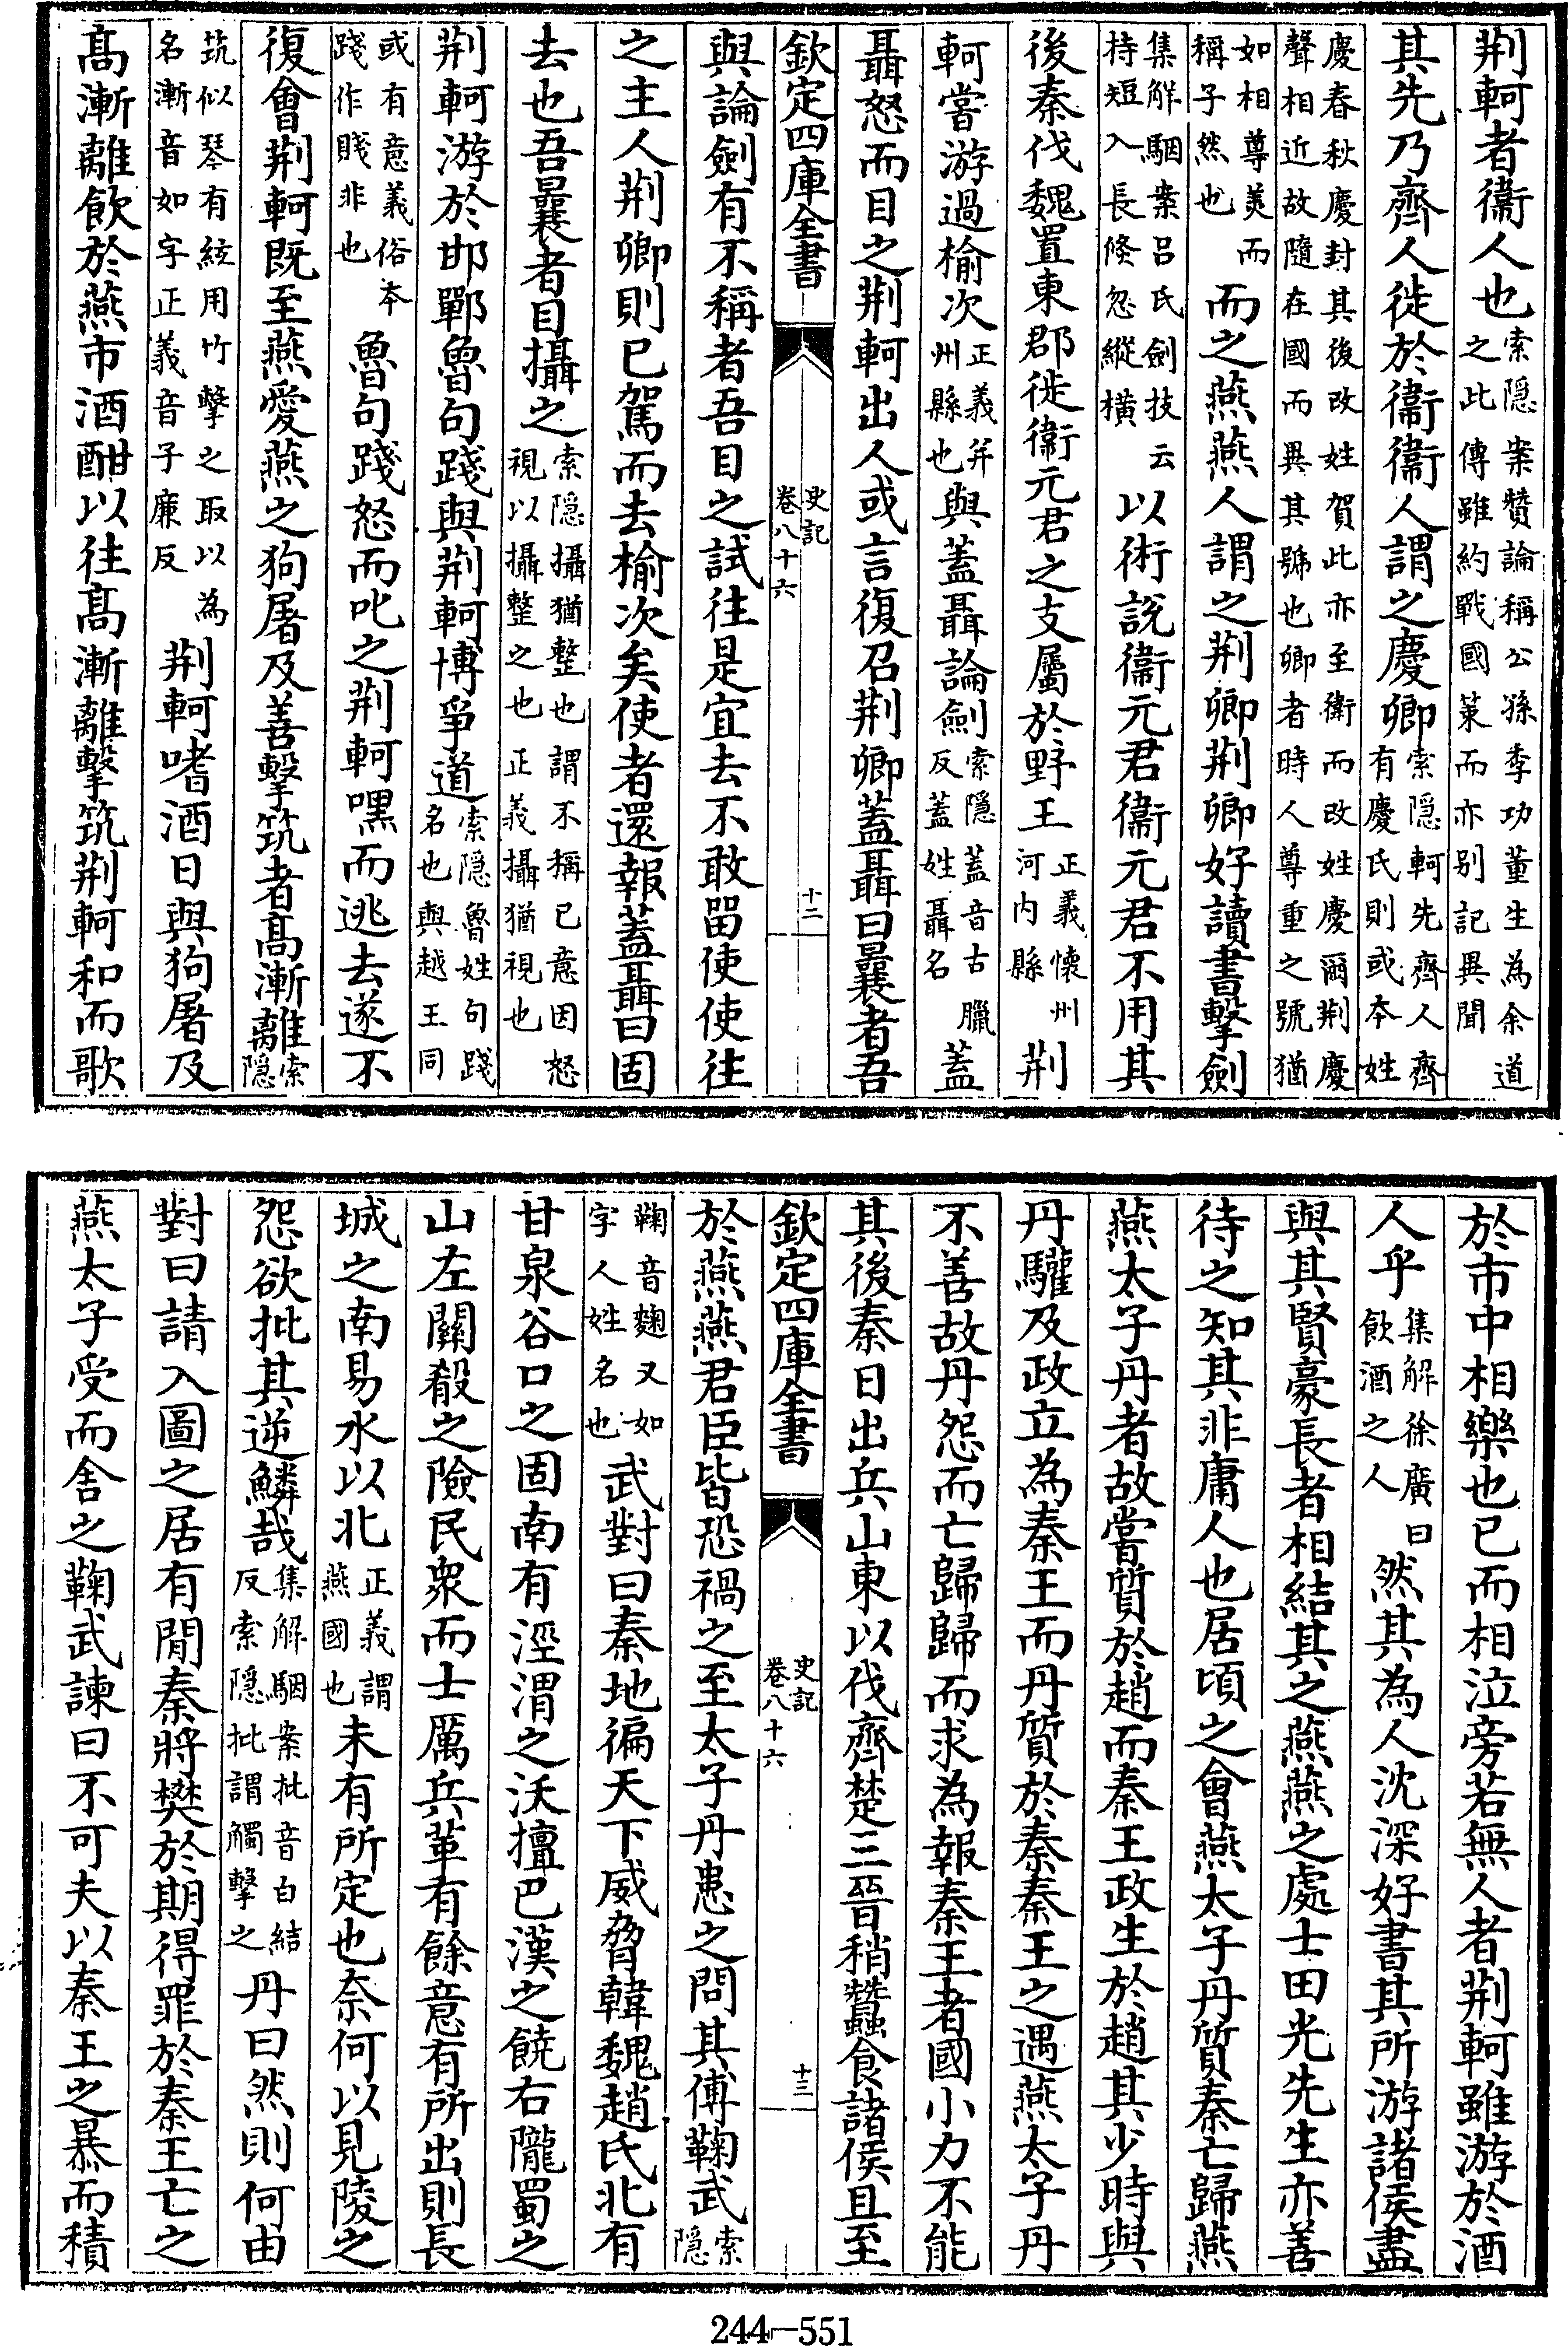 荆軻者衞人也索隠案贊論稱公孫季功董生為余道之此傳雖約戰國䇿而亦别記異聞
其先乃齊人徙於衞衞人謂之慶卿索隠軻先齊人齊有慶氏則或本姓
慶春秋慶封其後改姓賀此亦至衛而改姓慶爾荆慶聲相近故隨在國而異其號也卿者時人尊重之號猶
如相尊美而稱子然也而之燕燕人謂之荆卿荆卿好讀書擊劍
集解駰案吕氏劍技云持短入長倐忽縱横以術說衞元君衞元君不用其
後秦伐魏置東郡徙衞元君之支屬於野王正義懷州河内縣荆
軻嘗游過榆次正義并州縣也與蓋聶論劍索隠蓋音古臘反蓋姓聶名蓋
聶怒而目之荆軻出人或言復召荆卿蓋聶曰曩者吾
欽定四庫全書 史記卷八十六 十二
與論劍有不稱者吾目之試往是宜去不敢留使使往
之主人荆卿則已駕而去榆次矣使者還報蓋聶曰固
去也吾曩者目攝之索隠攝猶整也謂不稱已意因怒視以攝整之也正義攝猶視也
荆軻游於邯鄲魯句踐與荆軻博爭道索隠魯姓句踐名也與越王同
或有意義俗本踐作賤非也魯句踐怒而叱之荆軻嘿而逃去遂不
復㑹荆軻既至燕愛燕之狗屠及善擊筑者髙漸離索隠
筑似琴有絃用竹擊之取以為名漸音如字正義音子廉反荆軻嗜酒日與狗屠及
髙漸離飲於燕市酒酣以往髙漸離擊筑荆軻和而歌
於市中相樂也已而相泣旁若無人者荆軻雖游於酒
人乎集解徐廣曰飲酒之人然其為人沈深好書其所游諸侯盡
與其賢豪長者相結其之燕燕之處士田光先生亦善
待之知其非庸人也居頃之會燕太子丹質秦亡歸燕
燕太子丹者故嘗質於趙而秦王政生於趙其少時與
丹驩及政立為秦王而丹質於秦秦王之遇燕太子丹
不善故丹怨而亡歸歸而求為報秦王者國小力不能
其後秦日出兵山東以伐齊楚三晉稍蠶食諸侯且至
欽定四庫全書 史記卷八十六 十三
於燕燕君臣皆恐禍之至太子丹患之問其傅鞠武索隠
鞠音麴又如字人姓名也武對曰秦地徧天下威脅韓魏趙氏北有
甘泉谷口之固南有涇渭之沃擅巴漢之饒右隴蜀之
山左關殽之險民衆而士厲兵革有餘意有所出則長
城之南易水以北正義謂燕國也未有所定也奈何以見陵之
怨欲批其逆鱗哉集解駰案批音白結反索隠批謂觸擊之丹曰然則何由
對曰請入圖之居有閒秦將樊於期得罪於秦王亡之
燕太子受而舍之鞠武諫曰不可夫以秦王之暴而積
244—551